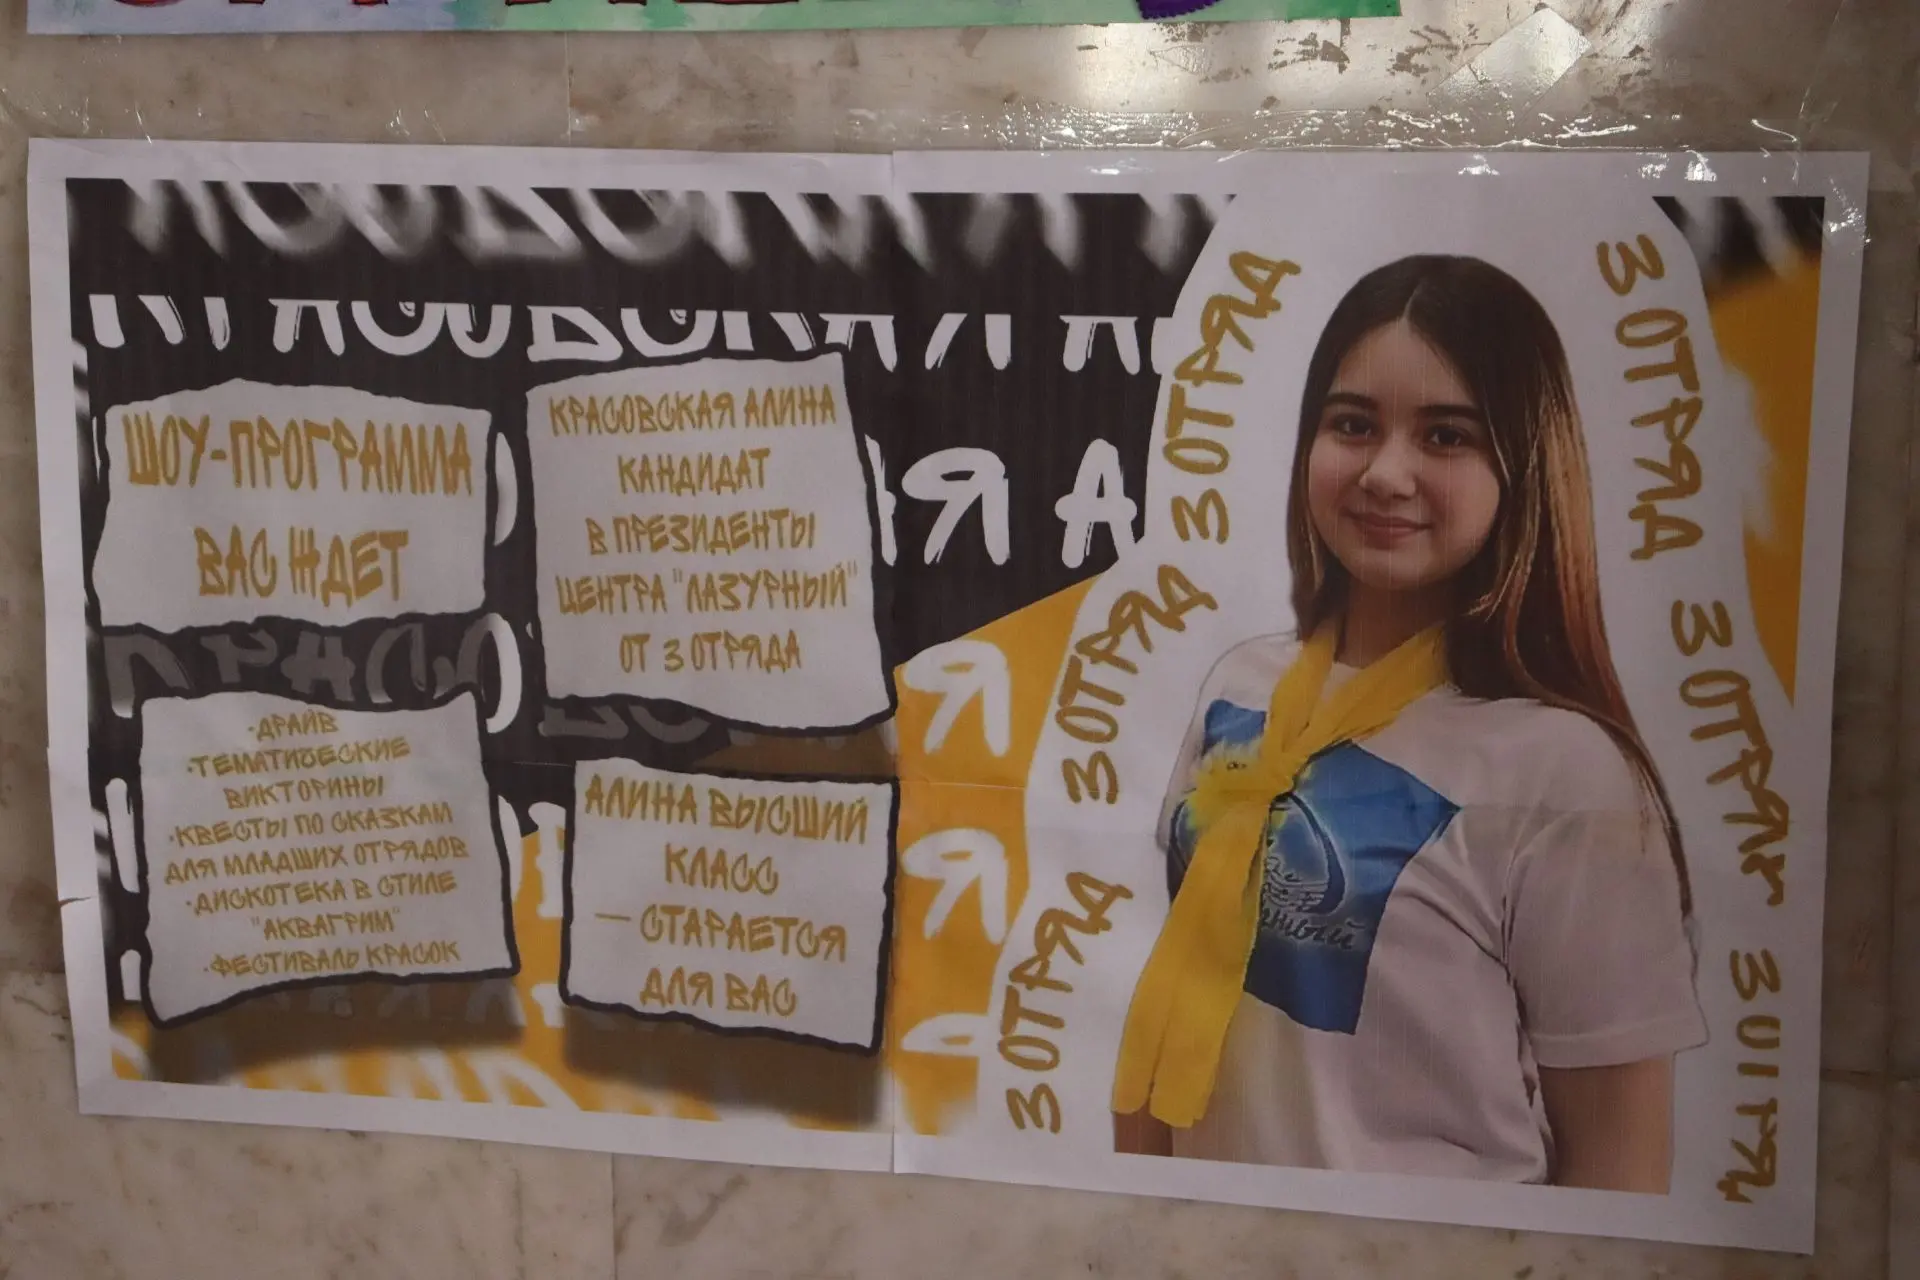 КРАСОВСКАЯ А
ШОУ-ПРОГРАММА
ВАС ЖДЕТ
КРАСОВСКАЯ АЛИНА
КАНДИДАТ
В ПРЕЗИДЕНТЫ
ЦЕНТРА "ЛАЗУРНЫЙ"
ОТ 3 ОТРЯДА
·ДРАЙВ
·ТЕМАТИЧЕСКИЕ
ВИКТОРИНЫ
·КВЕСТЫ ПО СКАЗКАМ
ДЛЯ МЛАДШИХ ОТРЯДОВ
·ДИСКОТЕКА В СТИЛЕ
"АКВАГРИМ"
·ФЕСТИВАЛЬ КРАСОК
АЛИНА ВЫСШИЙ
КЛАСС
— СТАРАЕТСЯ
ДЛЯ ВАС
3 ОТРЯД 3 ОТРЯД 3 ОТРЯД 3 ОТРЯД
3 ОТРЯД 3 ОТРЯД